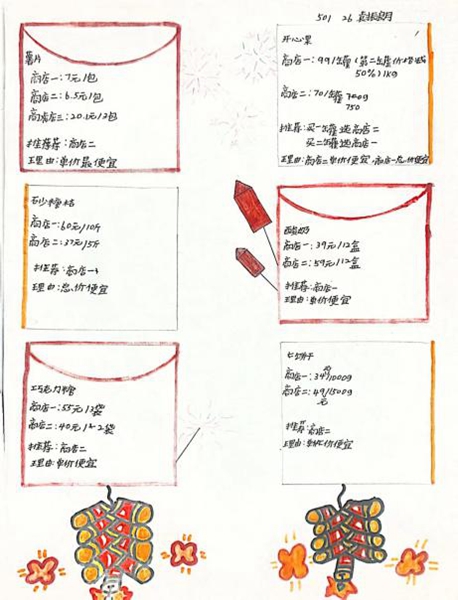 501 26
薯片
商店一:7元/1包
商店二:6.5元/1包
商店三:20.1元/3包
推荐:商店二
理由:单价最便宜
开心果
商店一:99/1罐(第二罐价格减
50%)1kg
商店二:70/1罐
750
推荐:买一罐选商店二
买二罐选商店一
理由:商店二单价便宜,商店一总价便宜
砂糖桔
商店一:60元/10斤
商店二:37元/5斤
推荐:商店一
理由:总价便宜
酸奶
商店一:39元/12盒
商店二:59元/12盒
推荐:商店一
理由:单价便宜
巧克力
商店一:55元/2袋
商店二:40元/2袋
推荐:商店二
理由:单价便宜
商店一:39/1000g
商店二:49/1500g
元
推荐:商店二
理由:单价便宜